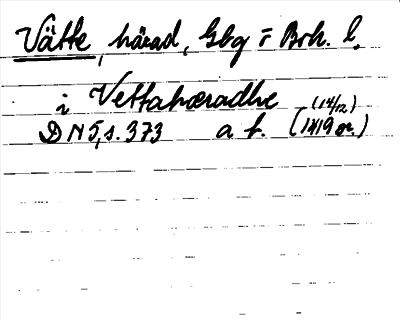 Vätte, härad, Gbg o Boh. l.
i Vettahæradhe (14/12)
DN 5, s. 373 a. f. (1419 or.)